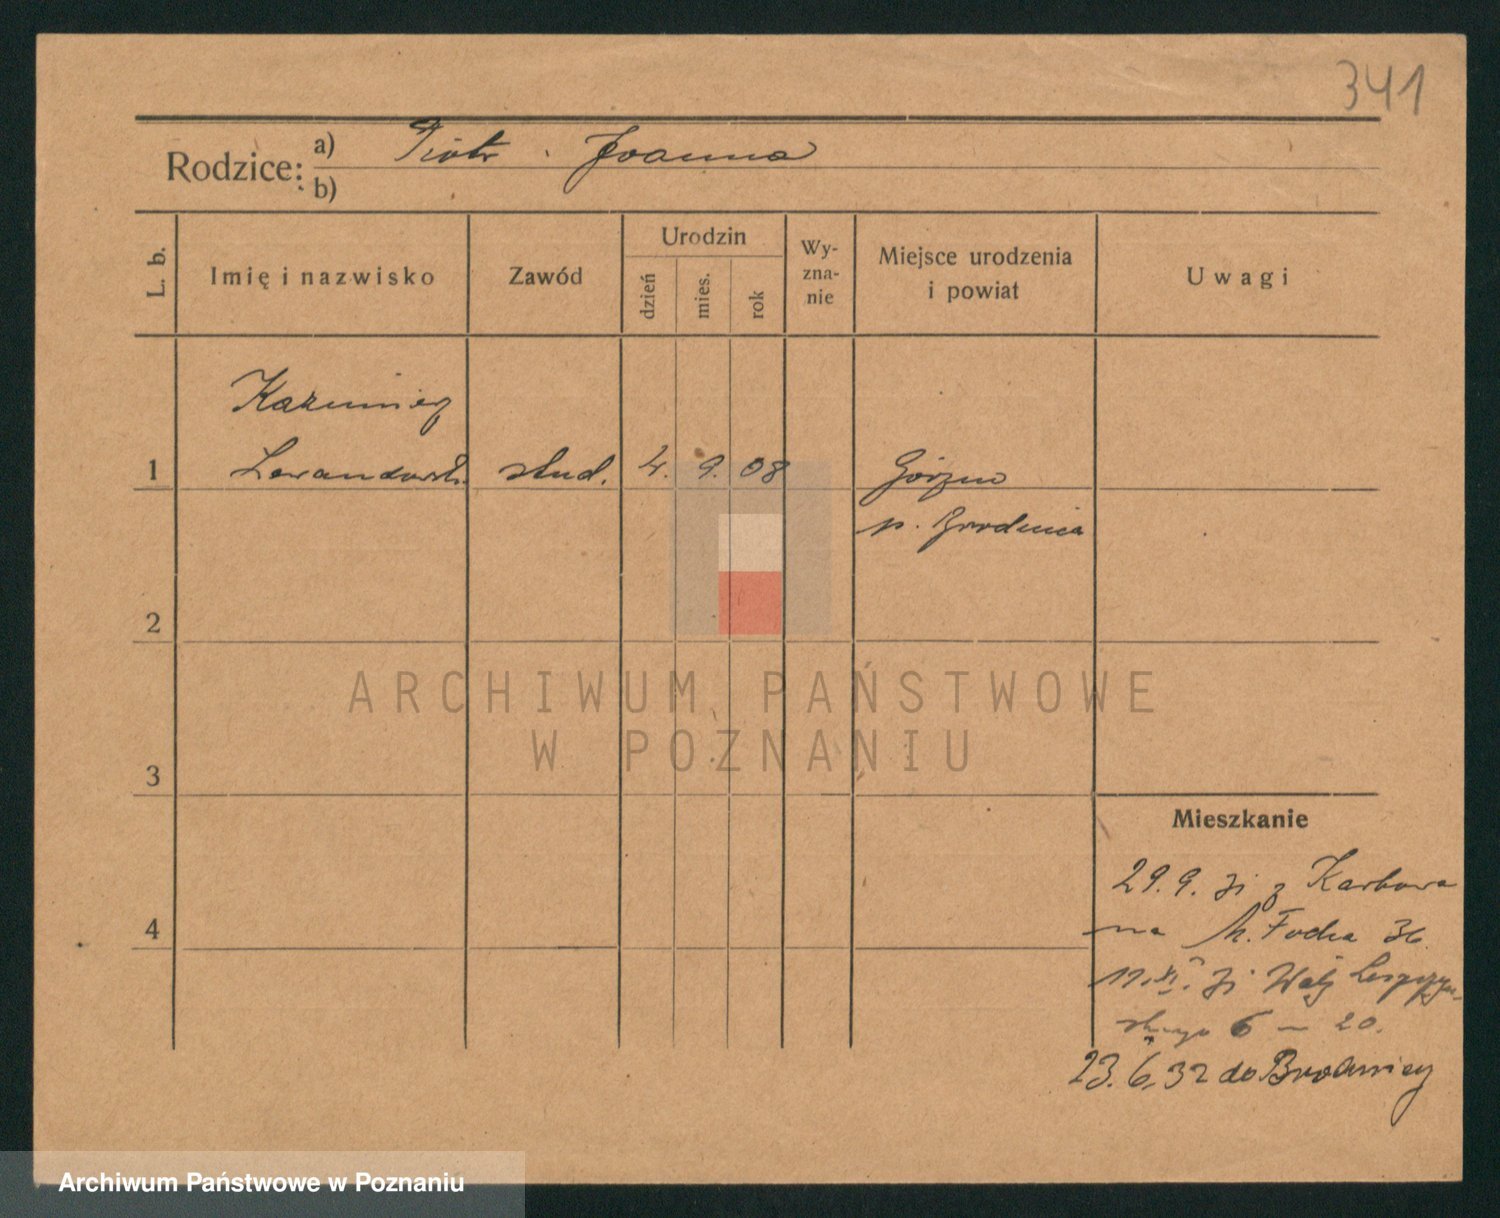 341
Rodzice: a) Piotr . Joanna
b)
L. b.
Imię i nazwisko
Zawód
Urodzin
dzień
mies.
rok
Wy-
zna-
nie
Miejsce urodzenia
i powiat
Uwagi
Kazimierz
1 Lewandowski stud. 4. 9. 08 Górzno
p. Brodnica
2
ARCHIWUM PAŃSTWOWE
W POZNANIU
3
Mieszkanie
29. 9. 31 z Karbowa
4
na M. Focha 36
17. XI. 31 Wały Leszczyń-
skiego 6 — 20.
23. 6. 32 do Brodnicy
Archiwum Państwowe w Poznaniu